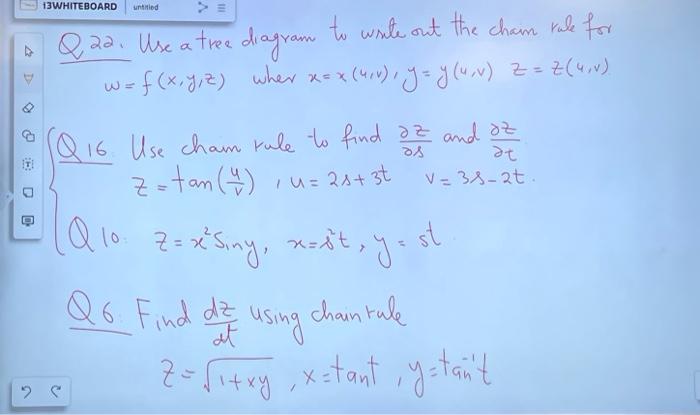 13WHITEBOARD untitled
Q 22. Use a tree diagram to write out the chain rule for
w = f(x,y,z) wher x = x(u,v), y = y(u,v) z = z(u,v).
Q 16. Use chain rule to find ∂z/∂s and ∂z/∂t
z = tan(u/v) , u = 2s + 3t v = 3s - 2t.
Q 10. z = x² Siny, x = s²t, y = st
Q 6. Find dz/dt using chain rule
z = √(1+xy) , x = tant , y = tan⁻¹t